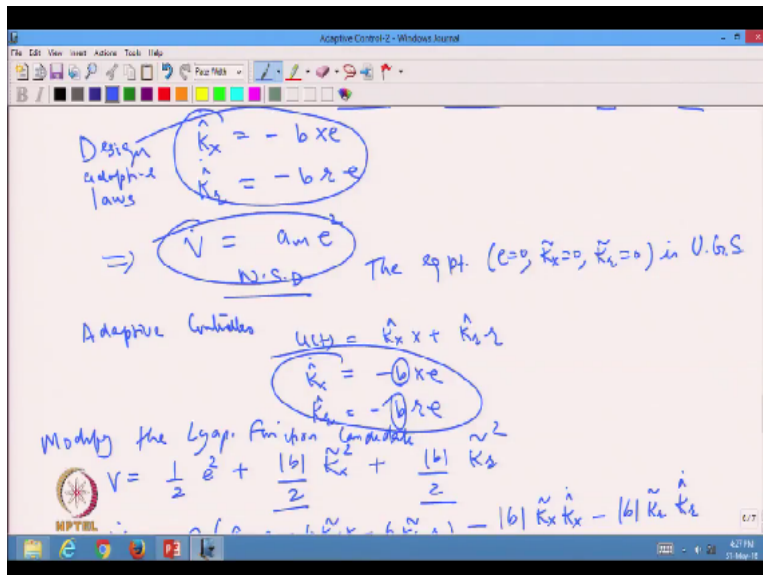 Adaptive Control-2 - Windows Journal
File Edit View Insert Actions Tools Help
Page Width
B I
Design adaptive laws
\dot{\hat{k}}_x = - b x e
\dot{\hat{k}}_r = - b r e
⇒ \dot{V} = a_m e^2
N.S.D The eq pt. (e=0, \tilde{k}_x=0, \tilde{k}_r=0) is U.G.S
Adaptive Controller u(t) = \hat{k}_x x + \hat{k}_r r
\dot{\hat{k}}_x = - b x e
\dot{\hat{k}}_r = - b r e
Modify the Lyap. Function Candidate
V = \frac{1}{2} e^2 + \frac{|b|}{2} \tilde{k}_x^2 + \frac{|b|}{2} \tilde{k}_r^2
- |b| \tilde{k}_x \dot{\hat{k}}_x - |b| \tilde{k}_r \dot{\hat{k}}_r
NPTEL
6/7
4:27 PM
31-May-18